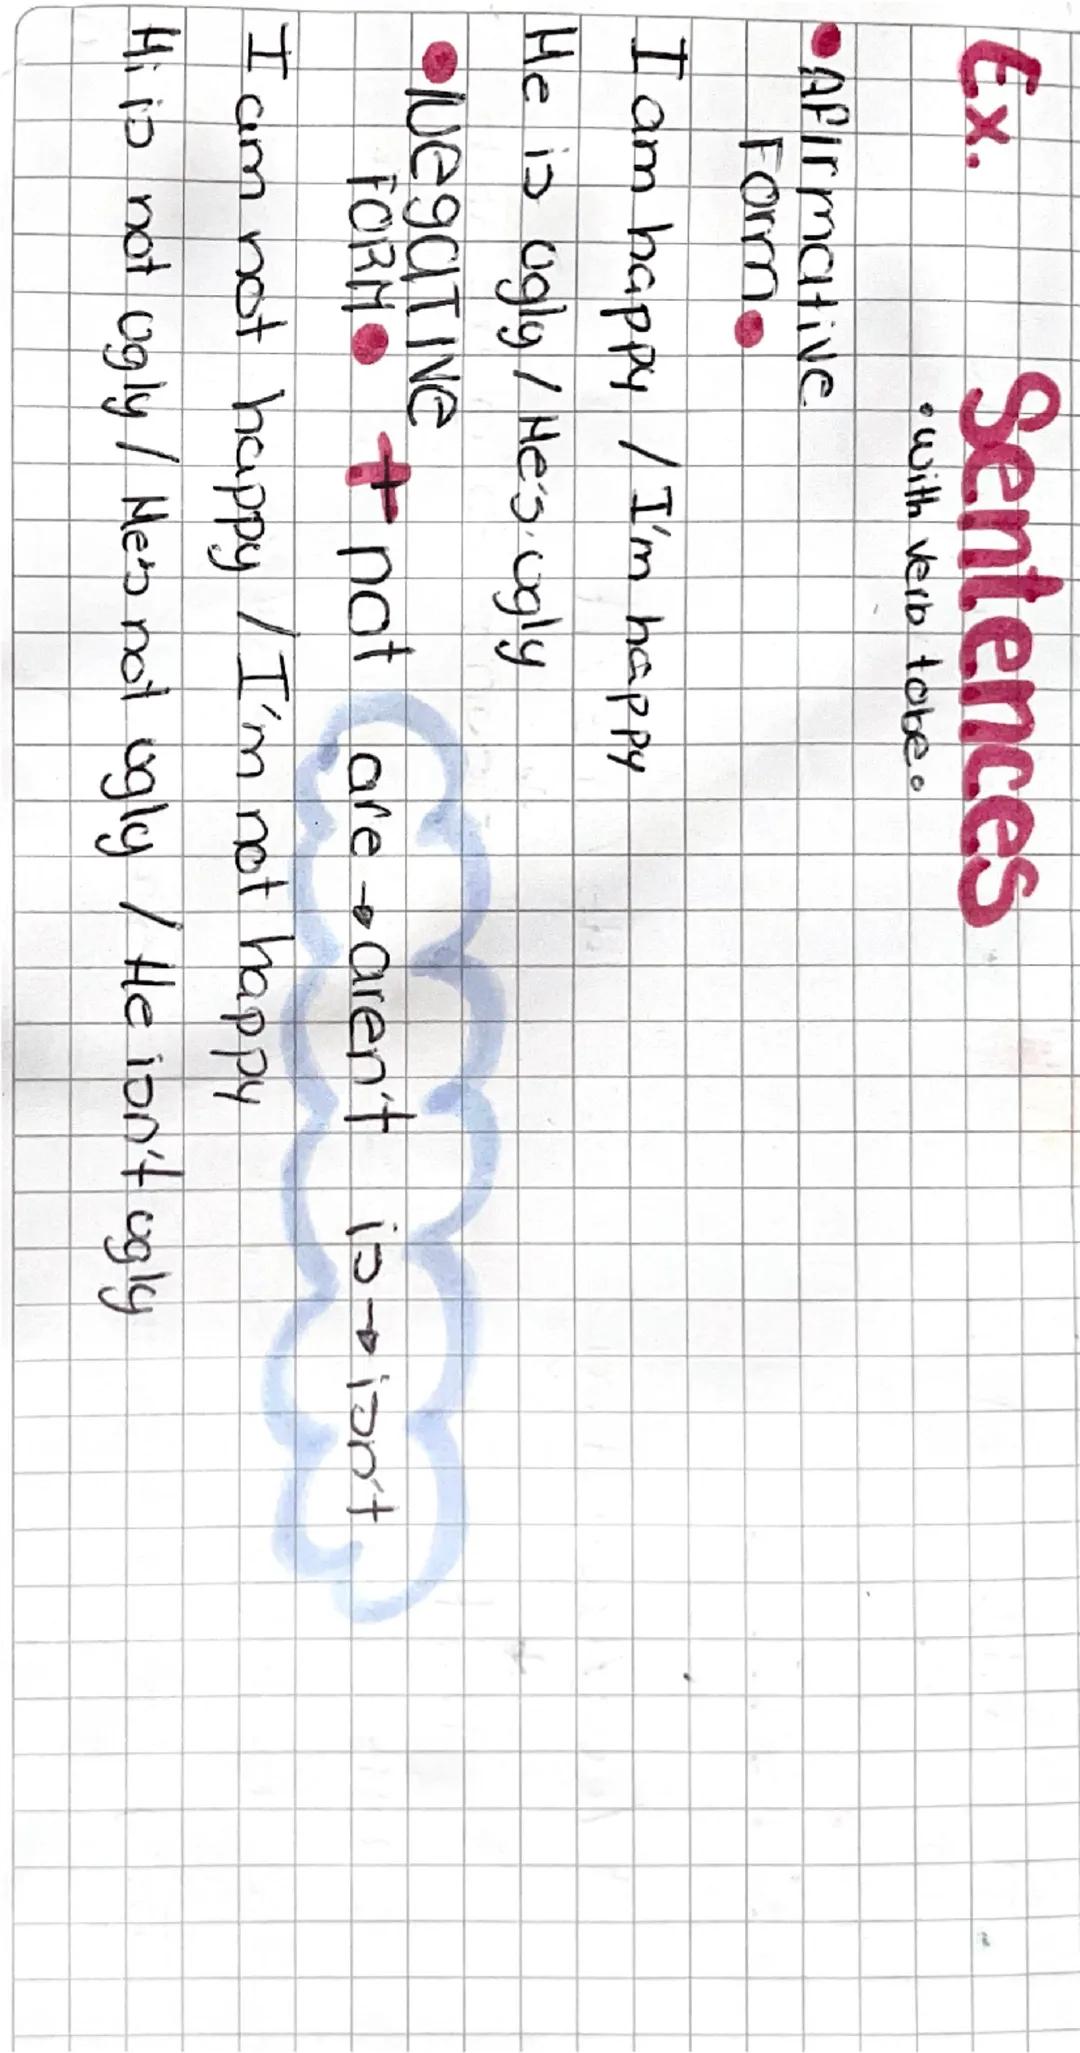 Ex. Sentences
• with verb tobe •
• Afirmative
Form •
I am happy / I'm happy
He is ugly / He's ugly
• NegaTIVe
FORM • + not are → aren't is → isn't
I am not happy / I'm not happy
Hi is not ugly / He's not ugly / He isn't ugly